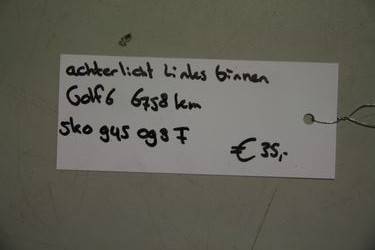 achterlicht Links binnen
Golf 6 6758 km
5k0 945 093 F
€ 35,-